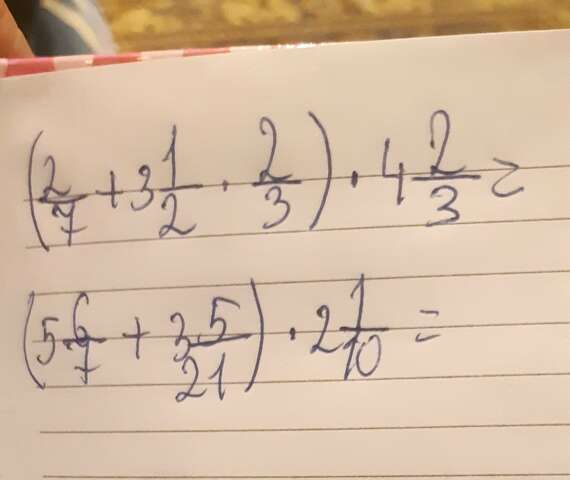 (2/7 + 3 1/2 · 2/3) · 4 2/3 =
(5 6/7 + 3 5/21) · 2 1/10 =